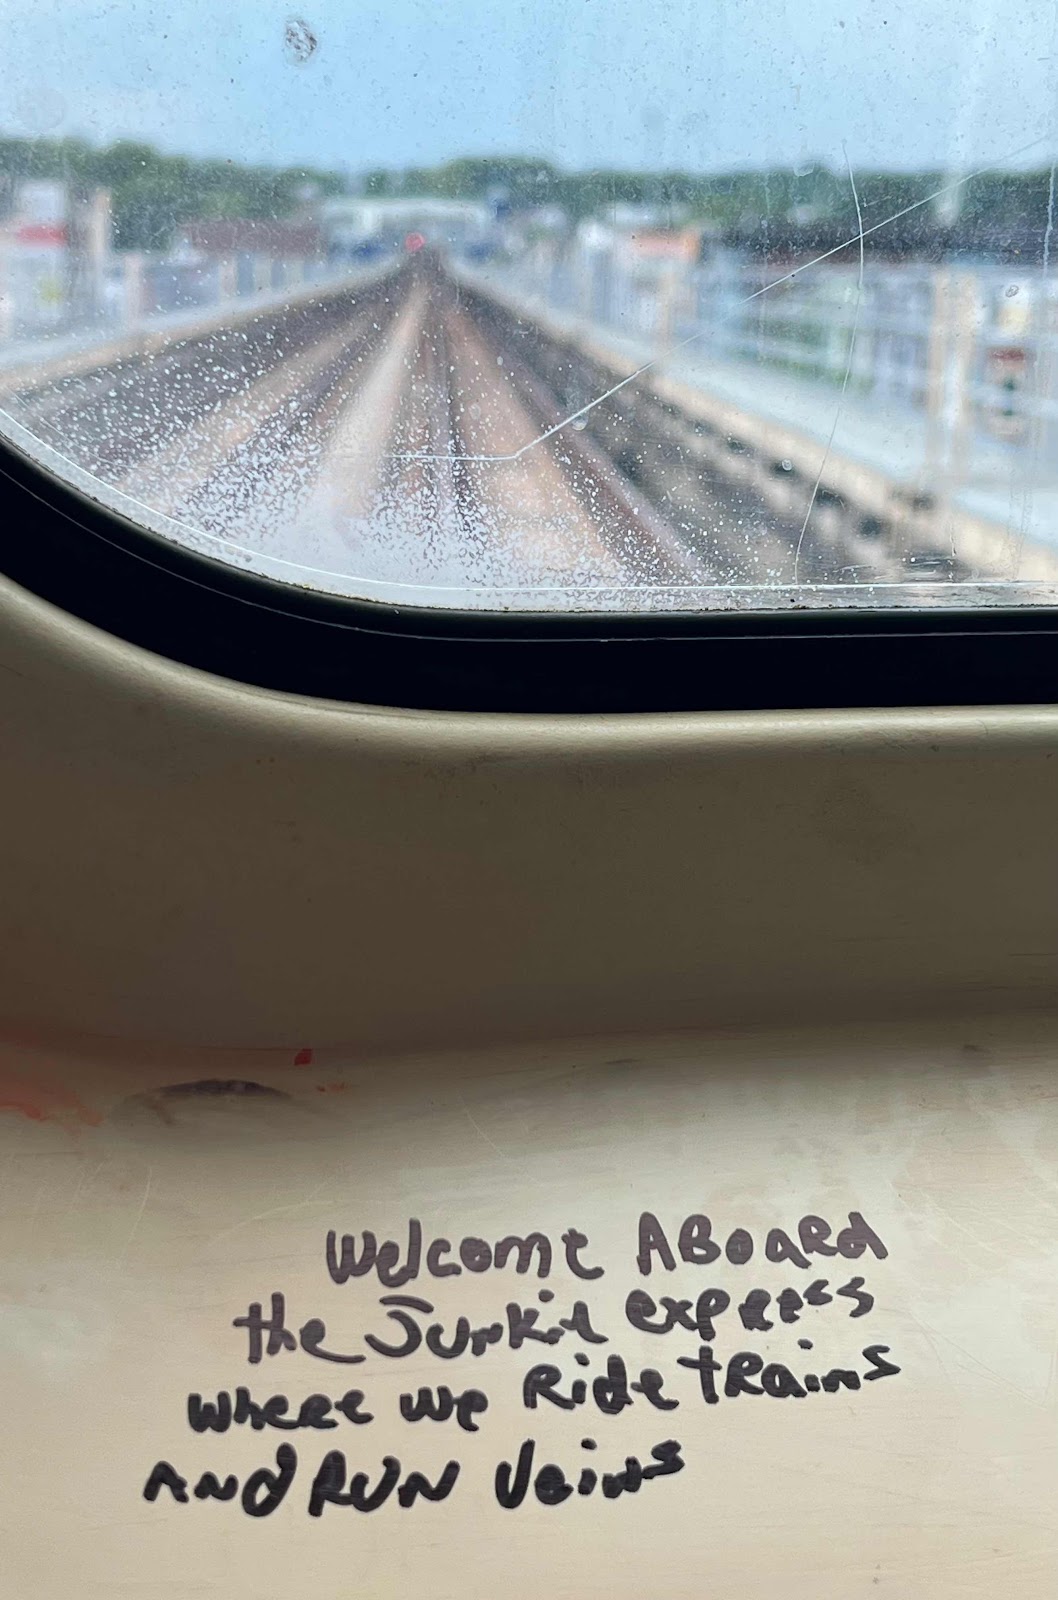 Welcome ABoaRd
the Junkie express
where we Ride tRains
AND RUN Veins